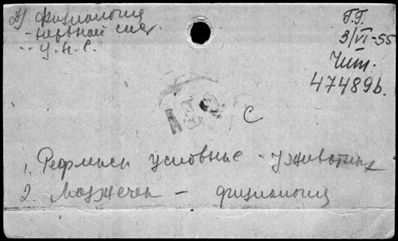 физиология
- нервной сис.
- " - У.Н.С.
Г.Г.
3/VI-55
Чит.
47489б.
С
1. Рефлексы условные - у животных
2. Мозжечек - физиология